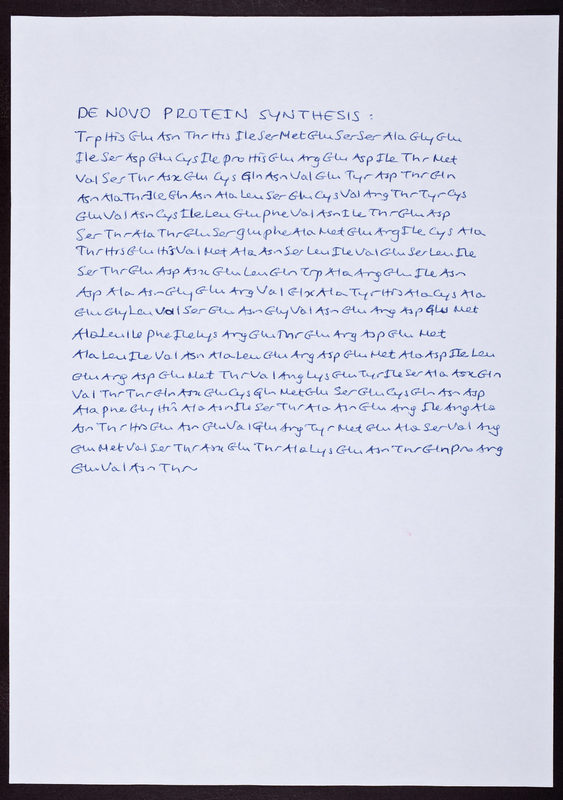 DE NOVO PROTEIN SYNTHESIS :
Trp His Glu Asn Thr His Ile Ser Met Glu Ser Ser Ala Gly Glu
Ile Ser Asp Glu Cys Ile Pro His Glu Arg Glu Asp Ile Thr Met
Val Ser Thr Asx Glu Cys Gln Asn Val Glu Tyr Asp Thr Gln
Asn Ala Thr Ile Gln Asn Ala Leu Ser Glu Cys Val Arg Thr Tyr Cys
Glu Val Asn Cys Ile Leu Glu Phe Val Asn Ile Thr Glu Asp
Ser Thr Ala Thr Glu Ser Glu Phe Ala Met Glu Arg Ile Cys Ala
Thr His Glu His Val Met Ala Asn Ser Leu Ile Val Glu Ser Leu Ile
Ser Thr Glu Asp Asx Glu Leu Gln Trp Ala Arg Glu Ile Asn
Asp Ala Asn Gly Glu Arg Val Glx Ala Tyr His Ala Cys Ala
Glu Gly Leu Val Ser Glu Asn Gly Val Asn Glu Arg Asp Glu Met
Ala Leu Ile Phe Ile Lys Arg Glu Thr Glu Arg Asp Glu Met
Ala Leu Ile Val Asn Ala Leu Glu Arg Asp Glu Met Ala Asp Ile Leu
Glu Arg Asp Glu Met Thr Val Arg Lys Glu Tyr Ile Ser Ala Asx Gln
Val Thr Thr Gln Asx Glu Cys Gln Met Glu Ser Glu Cys Gln Asn Asp
Ala Phe Gly His Ala Asn Ile Ser Thr Ala Asn Glu Arg Ile Arg Ala
Asn Thr His Glu Asn Glu Val Glu Arg Tyr Met Glu Ala Ser Val Arg
Glu Met Val Ser Thr Asx Glu Thr Ala Lys Glu Asn Thr Gln Pro Arg
Glu Val Asn Thr